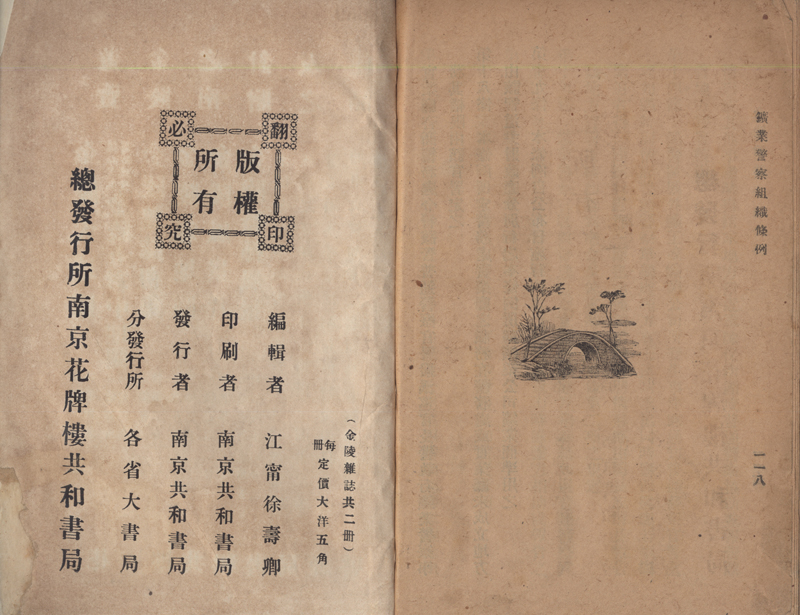 鑛業警察組織條例
一一八
（金陵雜誌共二冊）
每冊定價大洋五角
版權所有
翻印必究
編輯者 江甯徐壽卿
印刷者 南京共和書局
發行者 南京共和書局
分發行所 各省大書局
總發行所南京花牌樓共和書局